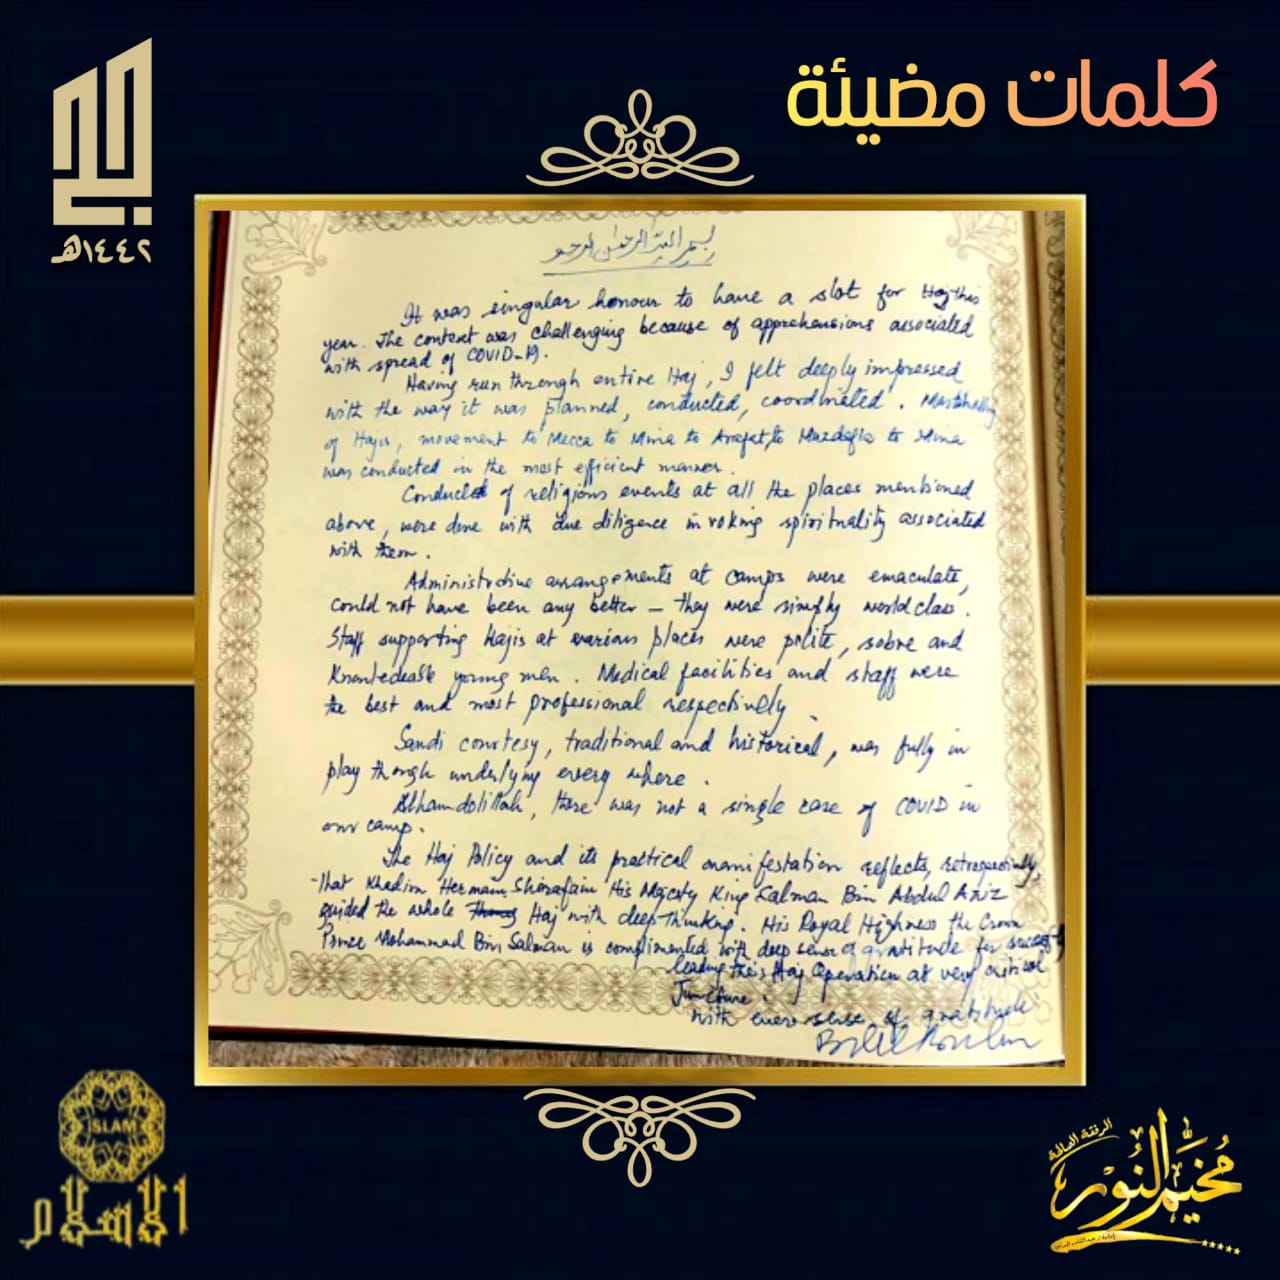 كلمات مضيئة
الحج
١٤٤٢هـ
بسم الله الرحمن الرحيم
It was singular honour to have a slot for Haj this
year. The context was challenging because of apprehensions associated
with spread of COVID-19.
Having run through entire Haj, I felt deeply impressed
with the way it was planned, conducted, coordinated.
of Hajis, movement to Mecca to Mina to Arafat, to Muzdafla to Mina
was conducted in the most efficient manner.
Conduct of religious events at all the places mentioned
above, were done with due diligence invoking spirituality associated
with them.
Administrative arrangements at camps were emaculate,
could not have been any better – they were simply world class.
Staff supporting Hajis at various places were polite, sobre and
Knowledeable young men. Medical facilities and staff were
the best and most professional respectively.
Saudi courtesy, traditional and historical, was fully in
play though underlying every where.
Alhamdolillah, there was not a single case of COVID in
our camp.
The Haj Policy and its practical manifestation reflects, retrospectively,
That Khadim Hermain Sharafain His Majesty King Salman Bin Abdul Aziz
guided the whole Haj with deep Thinking. His Royal Highness the Crown
Prince Mohammad Bin Salman is complimented with deep sense of gratitude for
leading this Haj Operation at very critical
Juncture.
with sense of gratitude
ISLAM
الإسلام
الرفقة الصالحة
مخيم النور